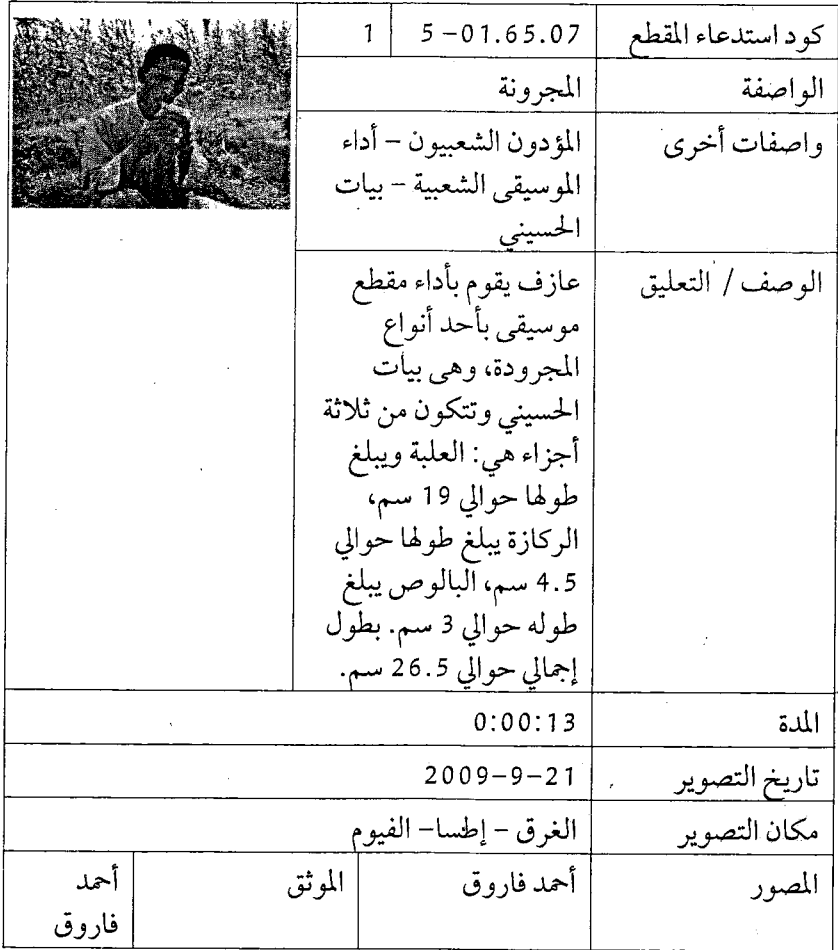 كود استدعاء المقطع 01.65.07-5 1
الواصفة المجرونة
واصفات أخرى المؤدون الشعبيون - أداء
الموسيقى الشعبية - بيات
الحسيني
الوصف / التعليق عازف يقوم بأداء مقطع
موسيقى بأحد أنواع
المجرودة، وهى بيات
الحسيني وتتكون من ثلاثة
أجزاء هي: العلبة ويبلغ
طولها حوالي 19 سم،
الركازة يبلغ طولها حوالي
4.5 سم، البالوص يبلغ
طوله حوالي 3 سم. بطول
إجمالي حوالي 26.5 سم.
المدة 0:00:13
تاريخ التصوير 21-9-2009
مكان التصوير الغرق - إطسا- الفيوم
المصور أحمد فاروق الموثق أحمد
فاروق